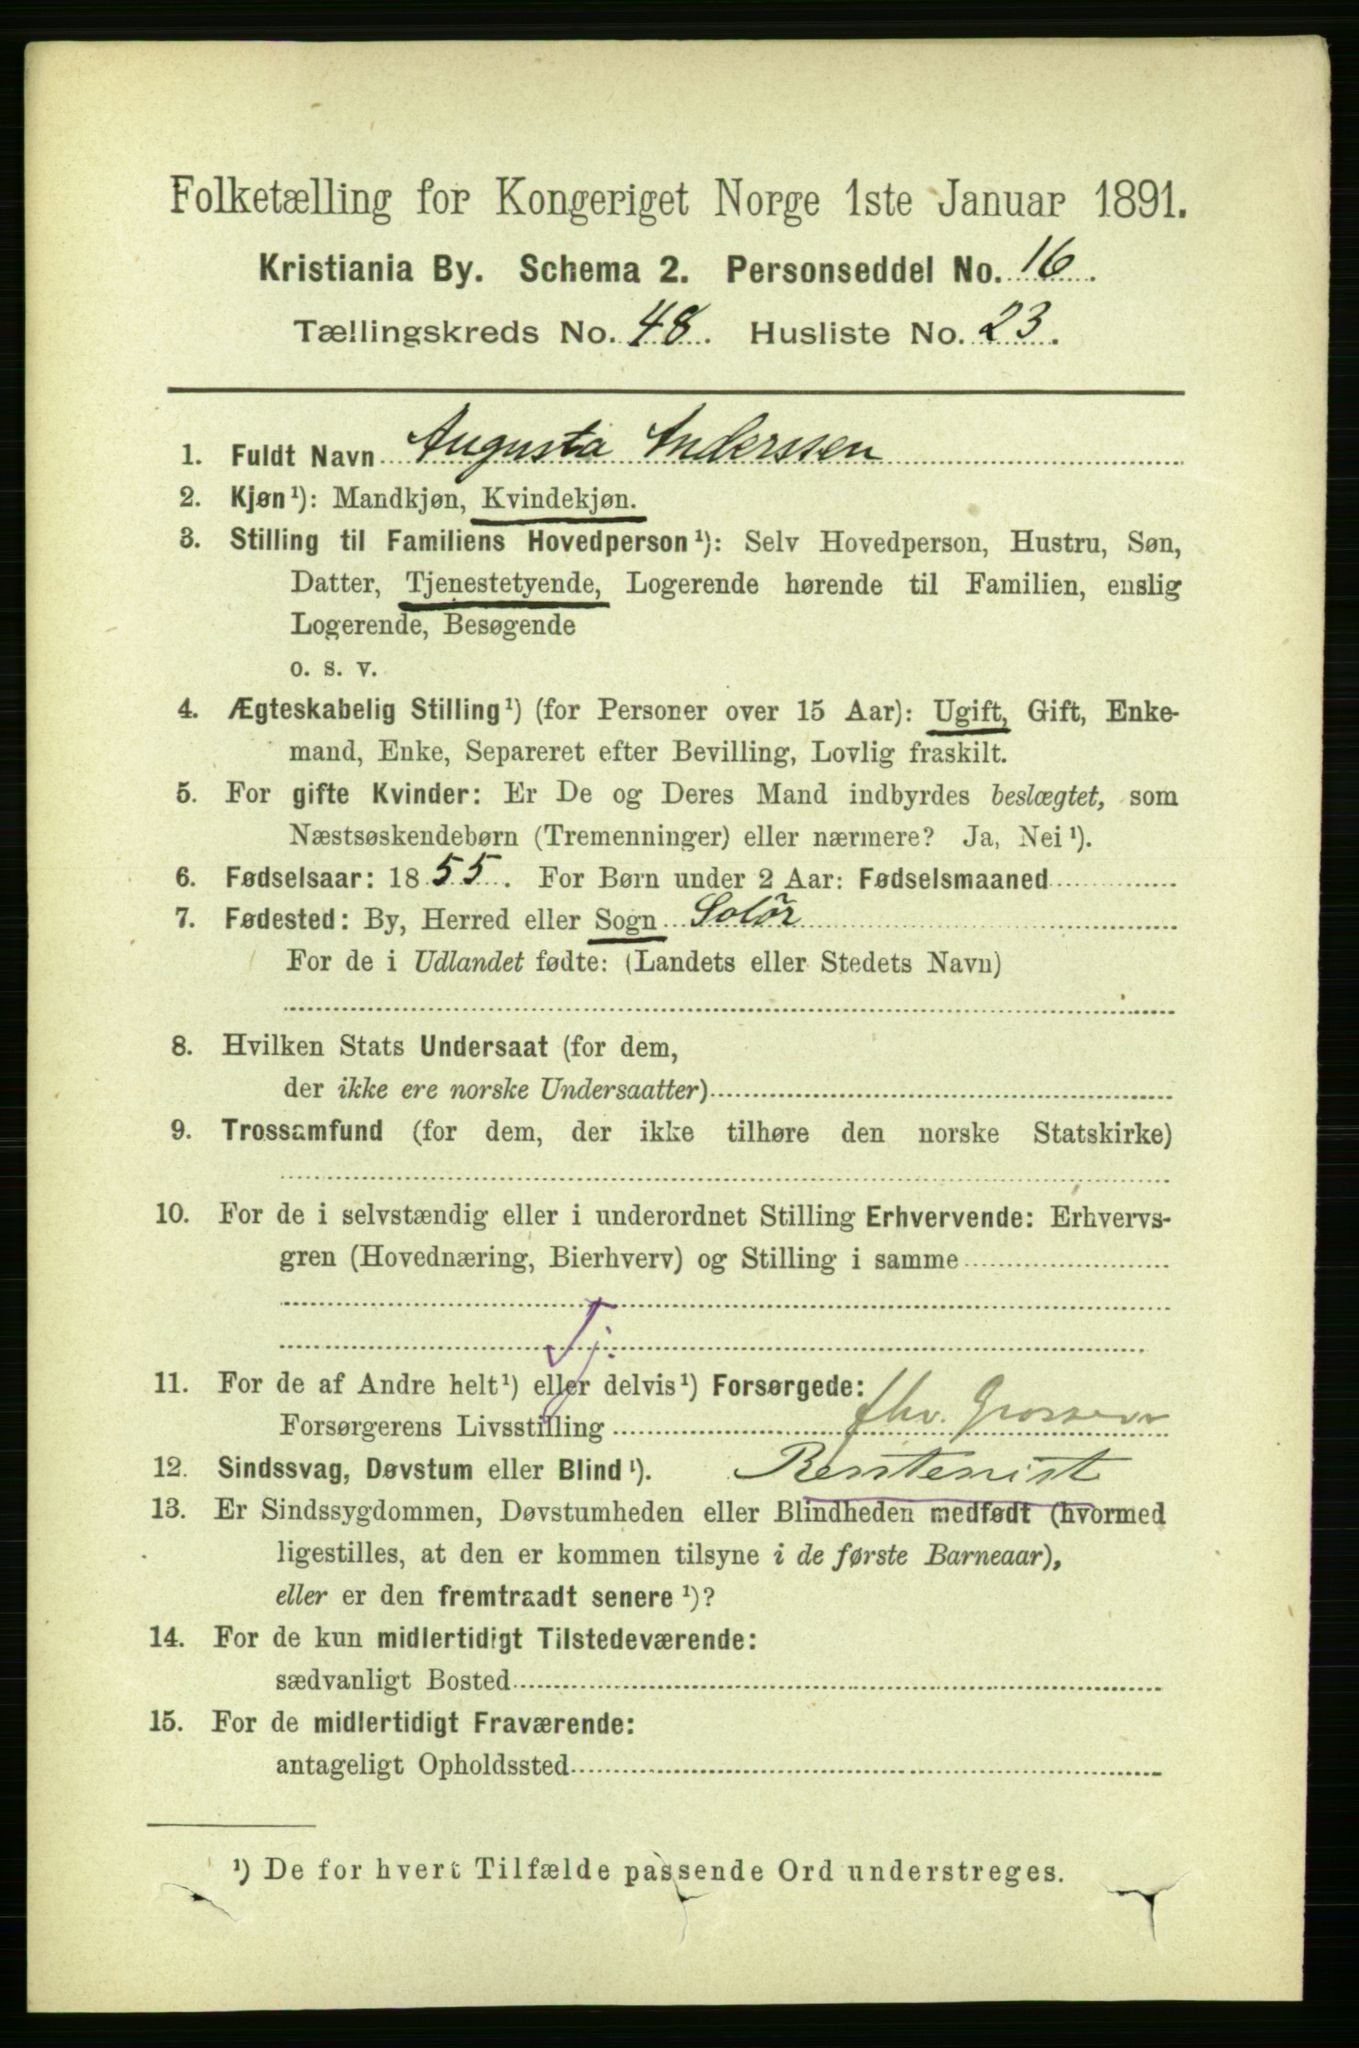 Folketælling for Kongeriget Norge 1ste Januar 1891.
Kristiania By. Schema 2. Personseddel No. 16.
Tællingskreds No. 48. Husliste No. 23.
1. Fuldt Navn Augusta Anderssen
2. Kjøn¹): Mandkjøn, Kvindekjøn.
3. Stilling til Familiens Hovedperson¹): Selv Hovedperson, Hustru, Søn,
Datter, Tjenestetyende, Logerende hørende til Familien, enslig
Logerende, Besøgende
o. s. v.
4. Ægteskabelig Stilling¹) (for Personer over 15 Aar): Ugift, Gift, Enke-
mand, Enke, Separeret efter Bevilling, Lovlig fraskilt.
5. For gifte Kvinder: Er De og Deres Mand indbyrdes beslægtet, som
Næstsøskendebørn (Tremenninger) eller nærmere? Ja, Nei¹).
6. Fødselsaar: 1855. For Børn under 2 Aar: Fødselsmaaned
7. Fødested: By, Herred eller Sogn Solör
For de i Udlandet fødte: (Landets eller Stedets Navn)
8. Hvilken Stats Undersaat (for dem,
der ikke ere norske Undersaatter)
9. Trossamfund (for dem, der ikke tilhøre den norske Statskirke)
10. For de i selvstændig eller i underordnet Stilling Erhvervende: Erhvervs-
gren (Hovednæring, Bierhverv) og Stilling i samme
Tj.
11. For de af Andre helt¹) eller delvis¹) Forsørgede:
Forsørgerens Livsstilling fhv. Grosserer
12. Sindssvag, Døvstum eller Blind¹). Rentenist
13. Er Sindssygdommen, Døvstumheden eller Blindheden medfødt (hvormed
ligestilles, at den er kommen tilsyne i de første Barneaar),
eller er den fremtraadt senere¹)?
14. For de kun midlertidigt Tilstedeværende:
sædvanligt Bosted
15. For de midlertidigt Fraværende:
antageligt Opholdssted
¹) De for hvert Tilfælde passende Ord understreges.